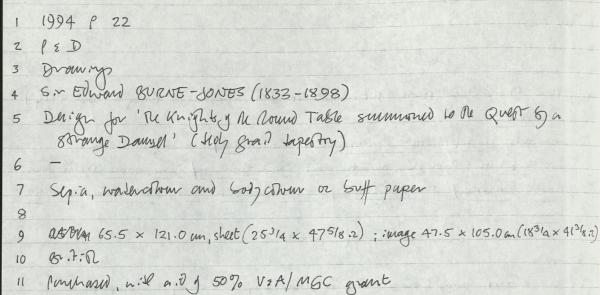 1 1994 P 22
2 P & D
3 Drawings
4 Sir Edward BURNE-JONES (1833-1898)
5 Design for 'The Knights of the Round Table summoned to the Quest by a
strange Damsel' (Holy Grail tapestry)
6 —
7 Sepia, watercolour and bodycolour on buff paper
8
9 65.5 × 121.0 cm, sheet (25 3/4 × 47 5/8 in); image 47.5 × 105.0 cm (18 3/4 × 41 3/8 in)
10 British
11 Purchased, with aid of 50% V&A/MGC grant